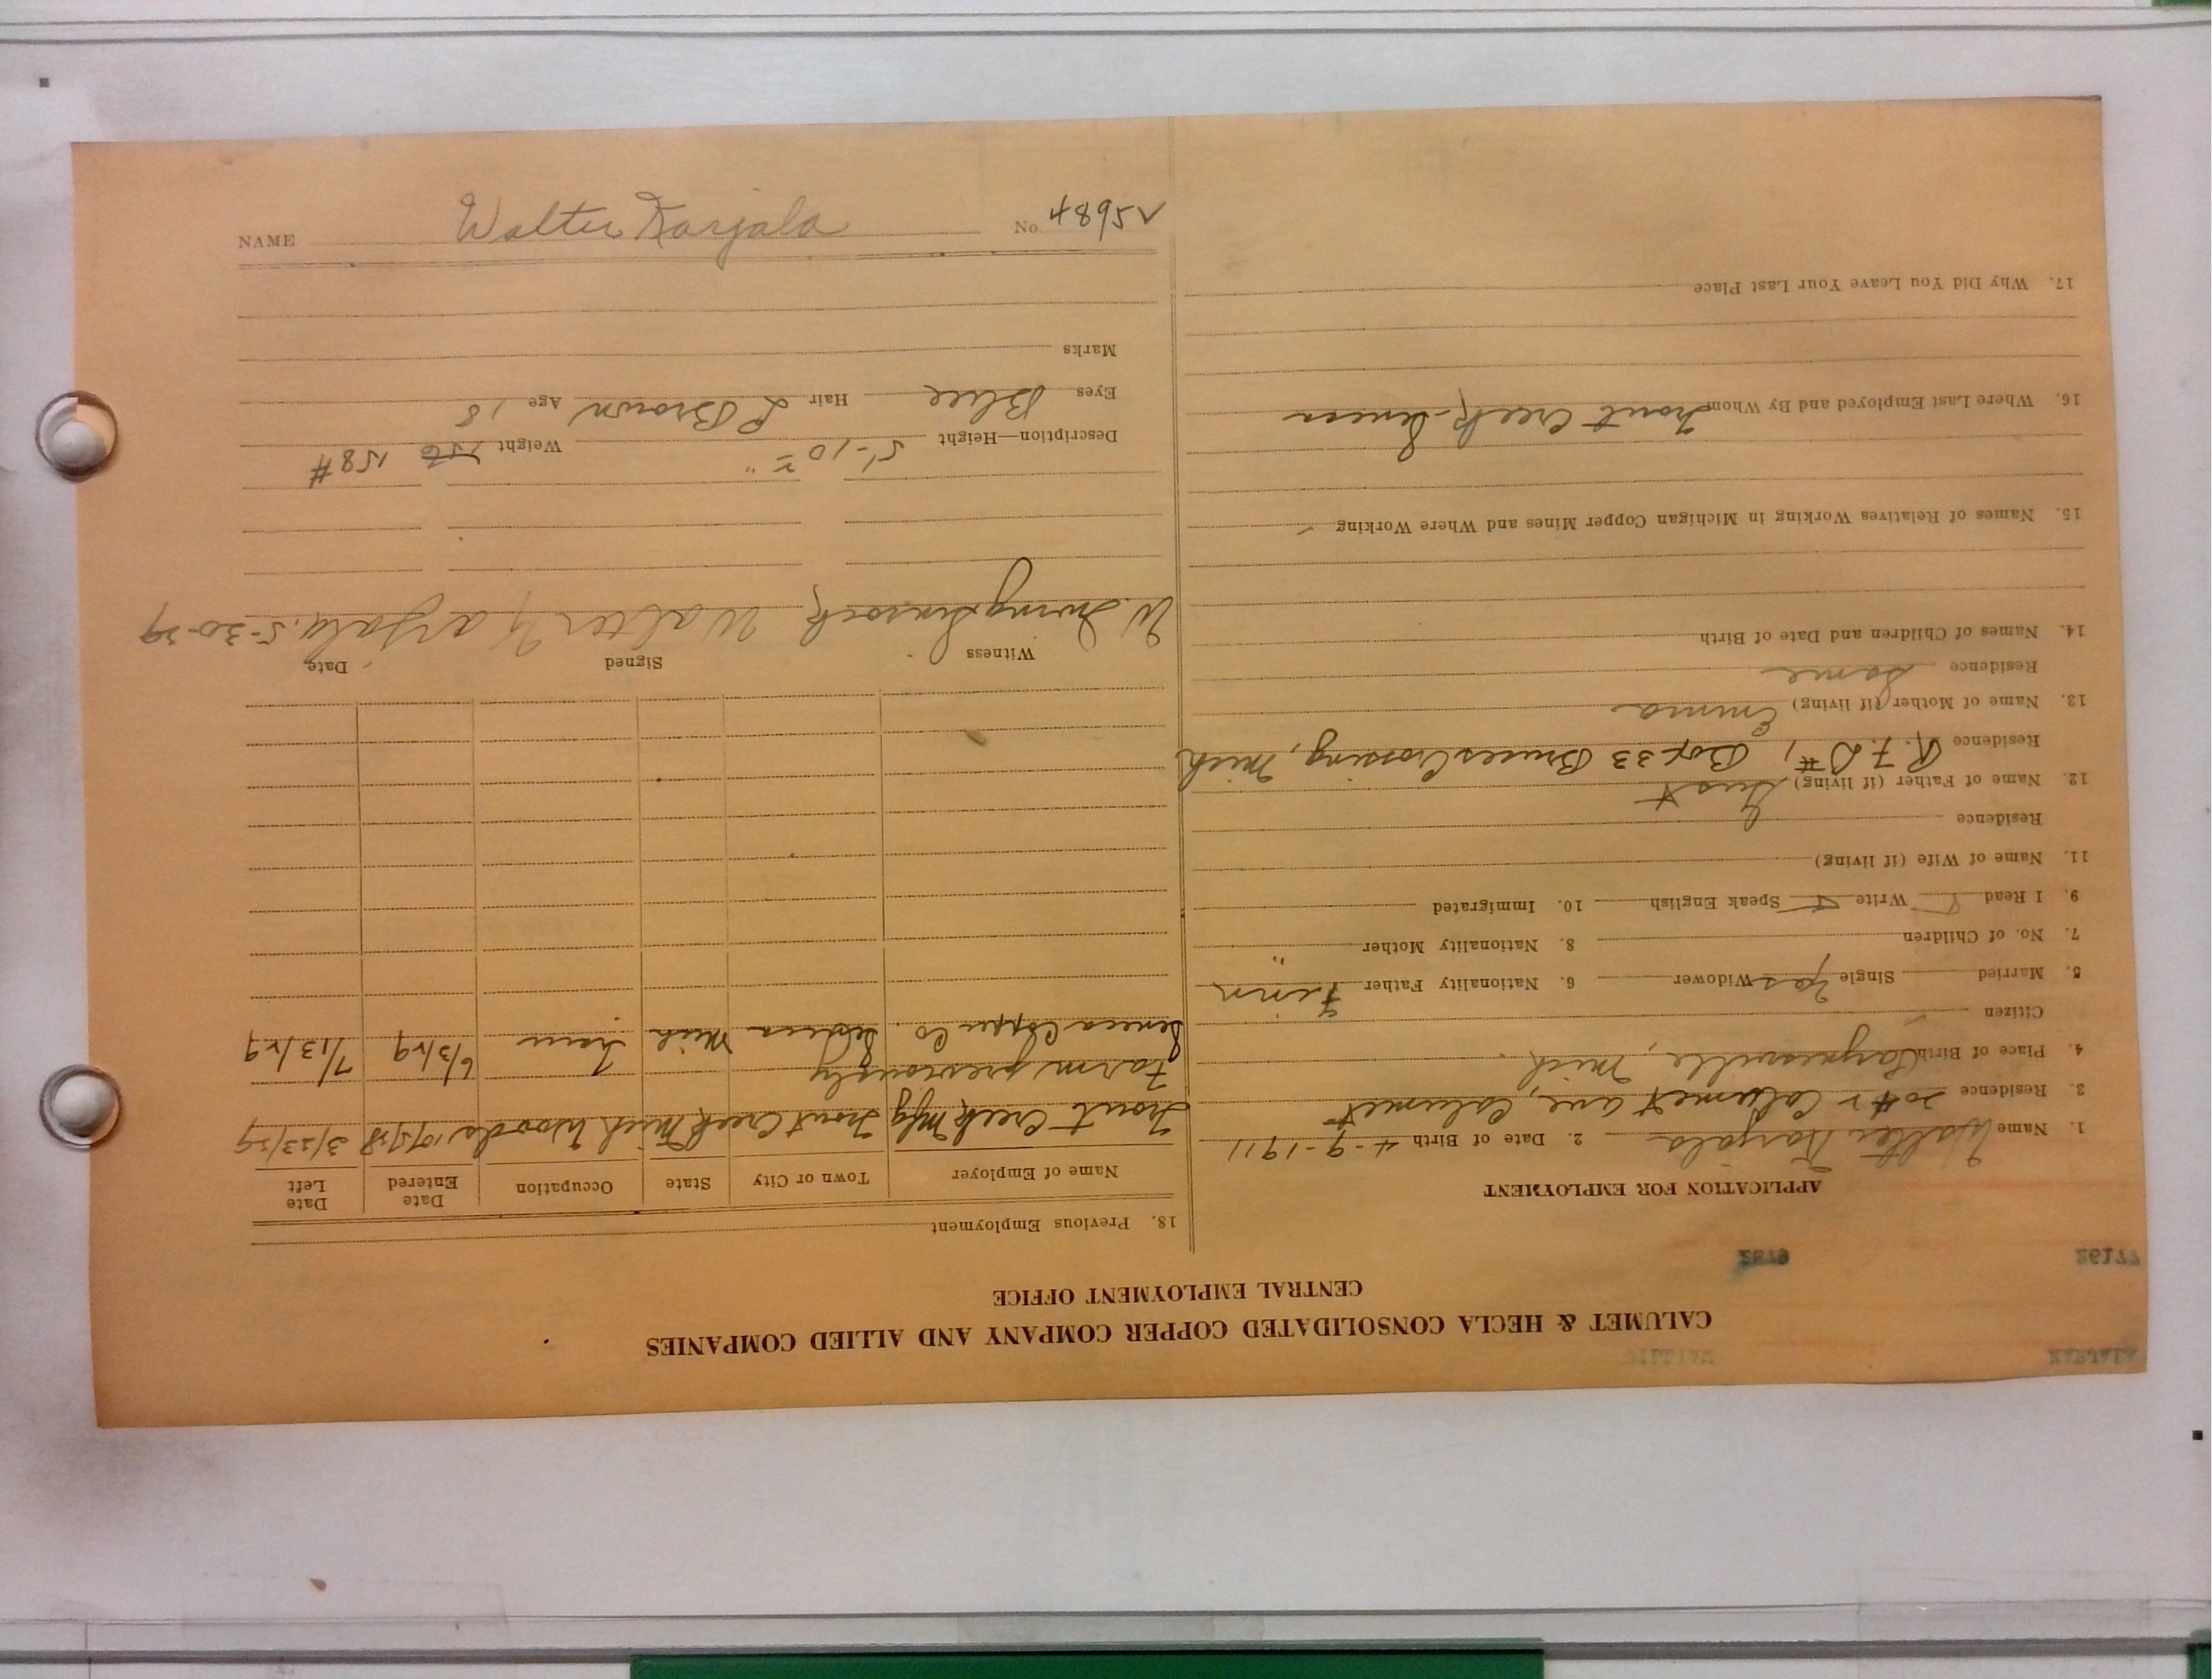 CALUMET & HECLA CONSOLIDATED COPPER COMPANY AND ALLIED COMPANIES
CENTRAL EMPLOYMENT OFFICE
77162
APPLICATION FOR EMPLOYMENT
1. Name Walter Karjala 2. Date of Birth 4-9-1911
3. Residence Calumet ave, Calumet
4. Place of Birth Mich.
Citizen
5. Married Single yes Widower 6. Nationality Father Finn
7. No. of Children 8. Nationality Mother "
9. I Read Write Speak English 10. Immigrated
11. Name of Wife (if living)
Residence
12. Name of Father (if living) Gust
Residence R.F.D #1, Box 33 Bruces Crossing, Mich
13. Name of Mother (if living) Emma
Residence Same
14. Names of Children and Date of Birth
15. Names of Relatives Working in Michigan Copper Mines and Where Working
16. Where Last Employed and By Whom Trout Creek - Seneca
17. Why Did You Leave Your Last Place
18. Previous Employment
Name of Employer Town or City State Occupation Date Entered Date Left
Trout Creek Mfg Trout Creek Mich Woods 3/23/29
Farm previously
Seneca Copper Co. Mich 6/3/29 7/13/29
Witness Signed Date
W. Irving Walter Karjala. 5-30-29
Description—Height 5'-10 Weight 156 158#
Eyes Blue Hair L Brown Age 18
Marks
NAME Walter Karjala No 25684